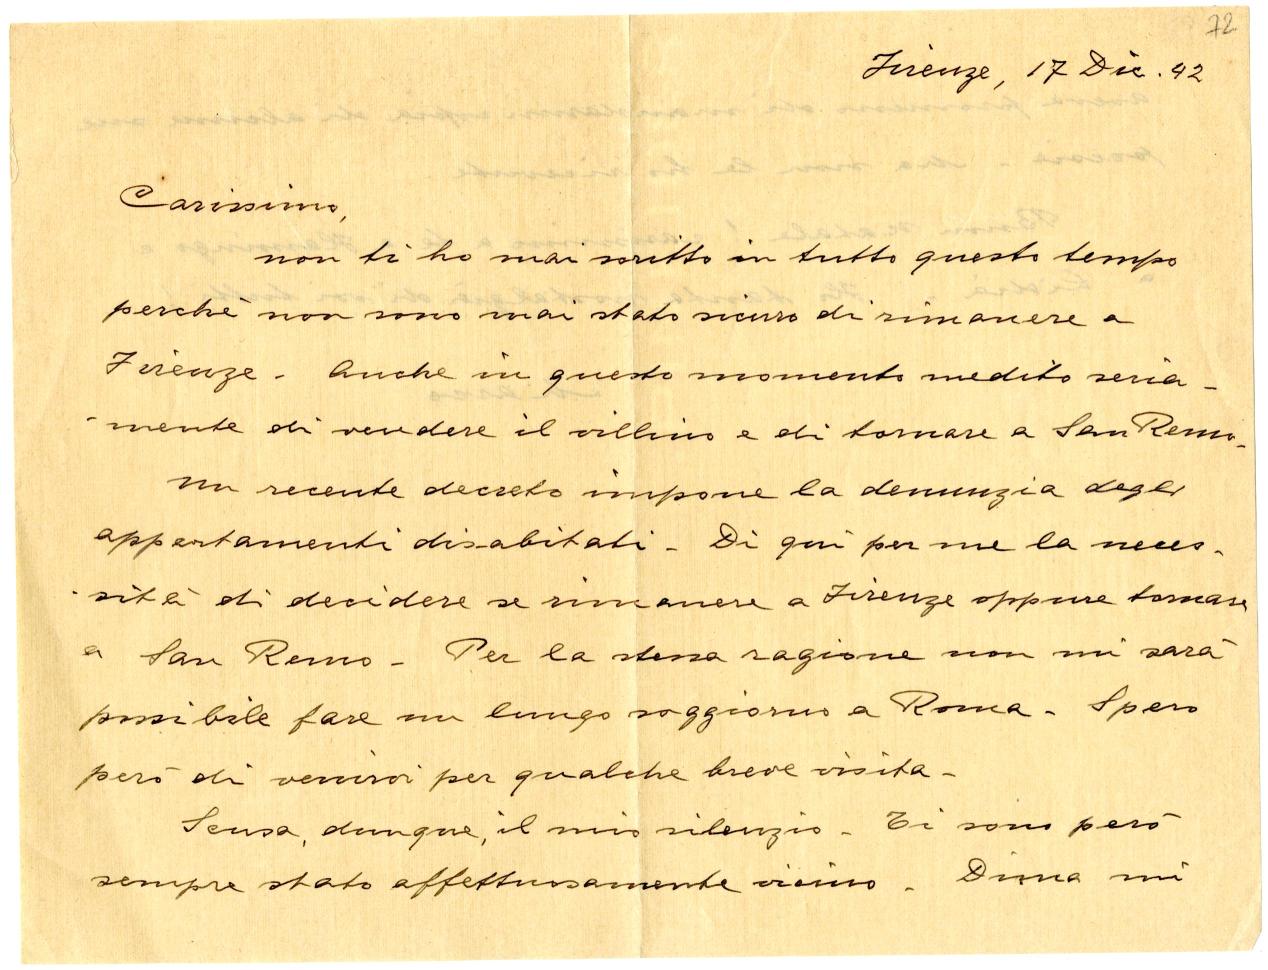 72
Firenze, 17 Dic. 42
Carissimo,
non ti ho mai scritto in tutto questo tempo
perchè non sono mai stato sicuro di rimanere a
Firenze - Anche in questo momento medito seria-
-mente di vendere il villino e di tornare a San Remo-
Un recente decreto impone la denunzia degli
appartamenti disabitati - Di qui per me la neces-
-sità di decidere se rimanere a Firenze oppure tornare
a San Remo - Per la stessa ragione non mi sarà
possibile fare un lungo soggiorno a Roma - Spero
però di venirvi per qualche breve visita -
Scusa, dunque, il mio silenzio - Ti sono però
sempre stato affettuosamente vicino - Dima mi